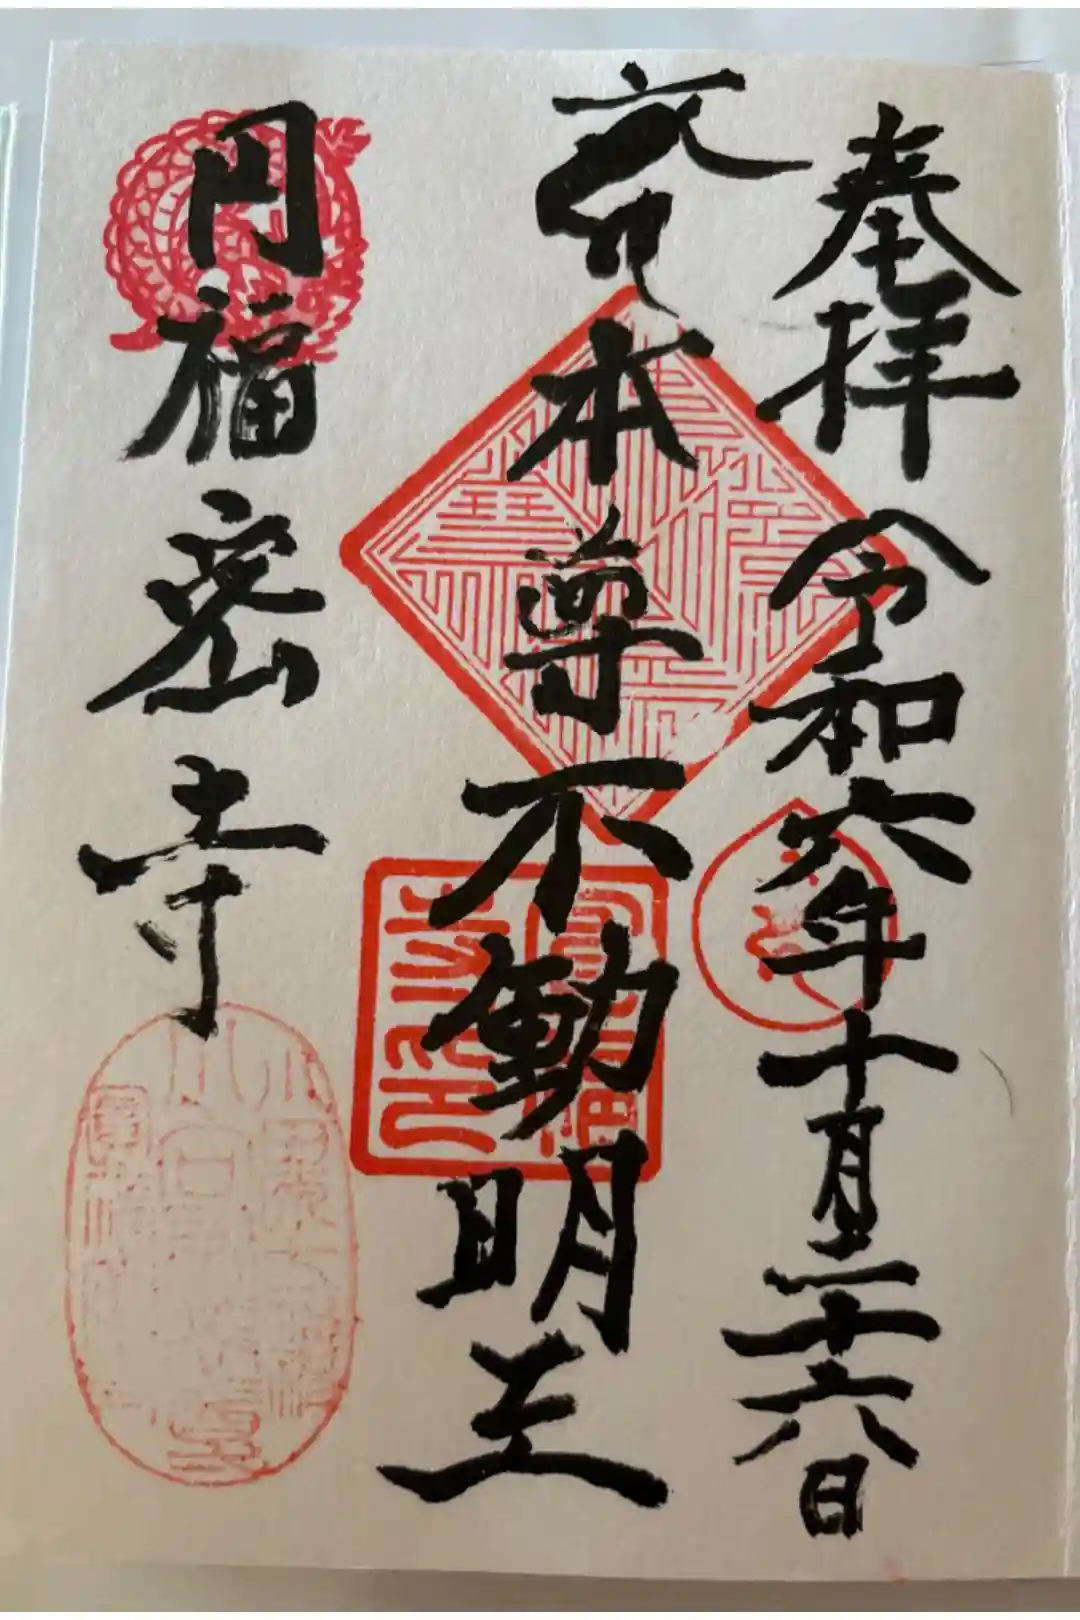 奉拝 令和六年十月二十六日
本尊不動明王
円福密寺